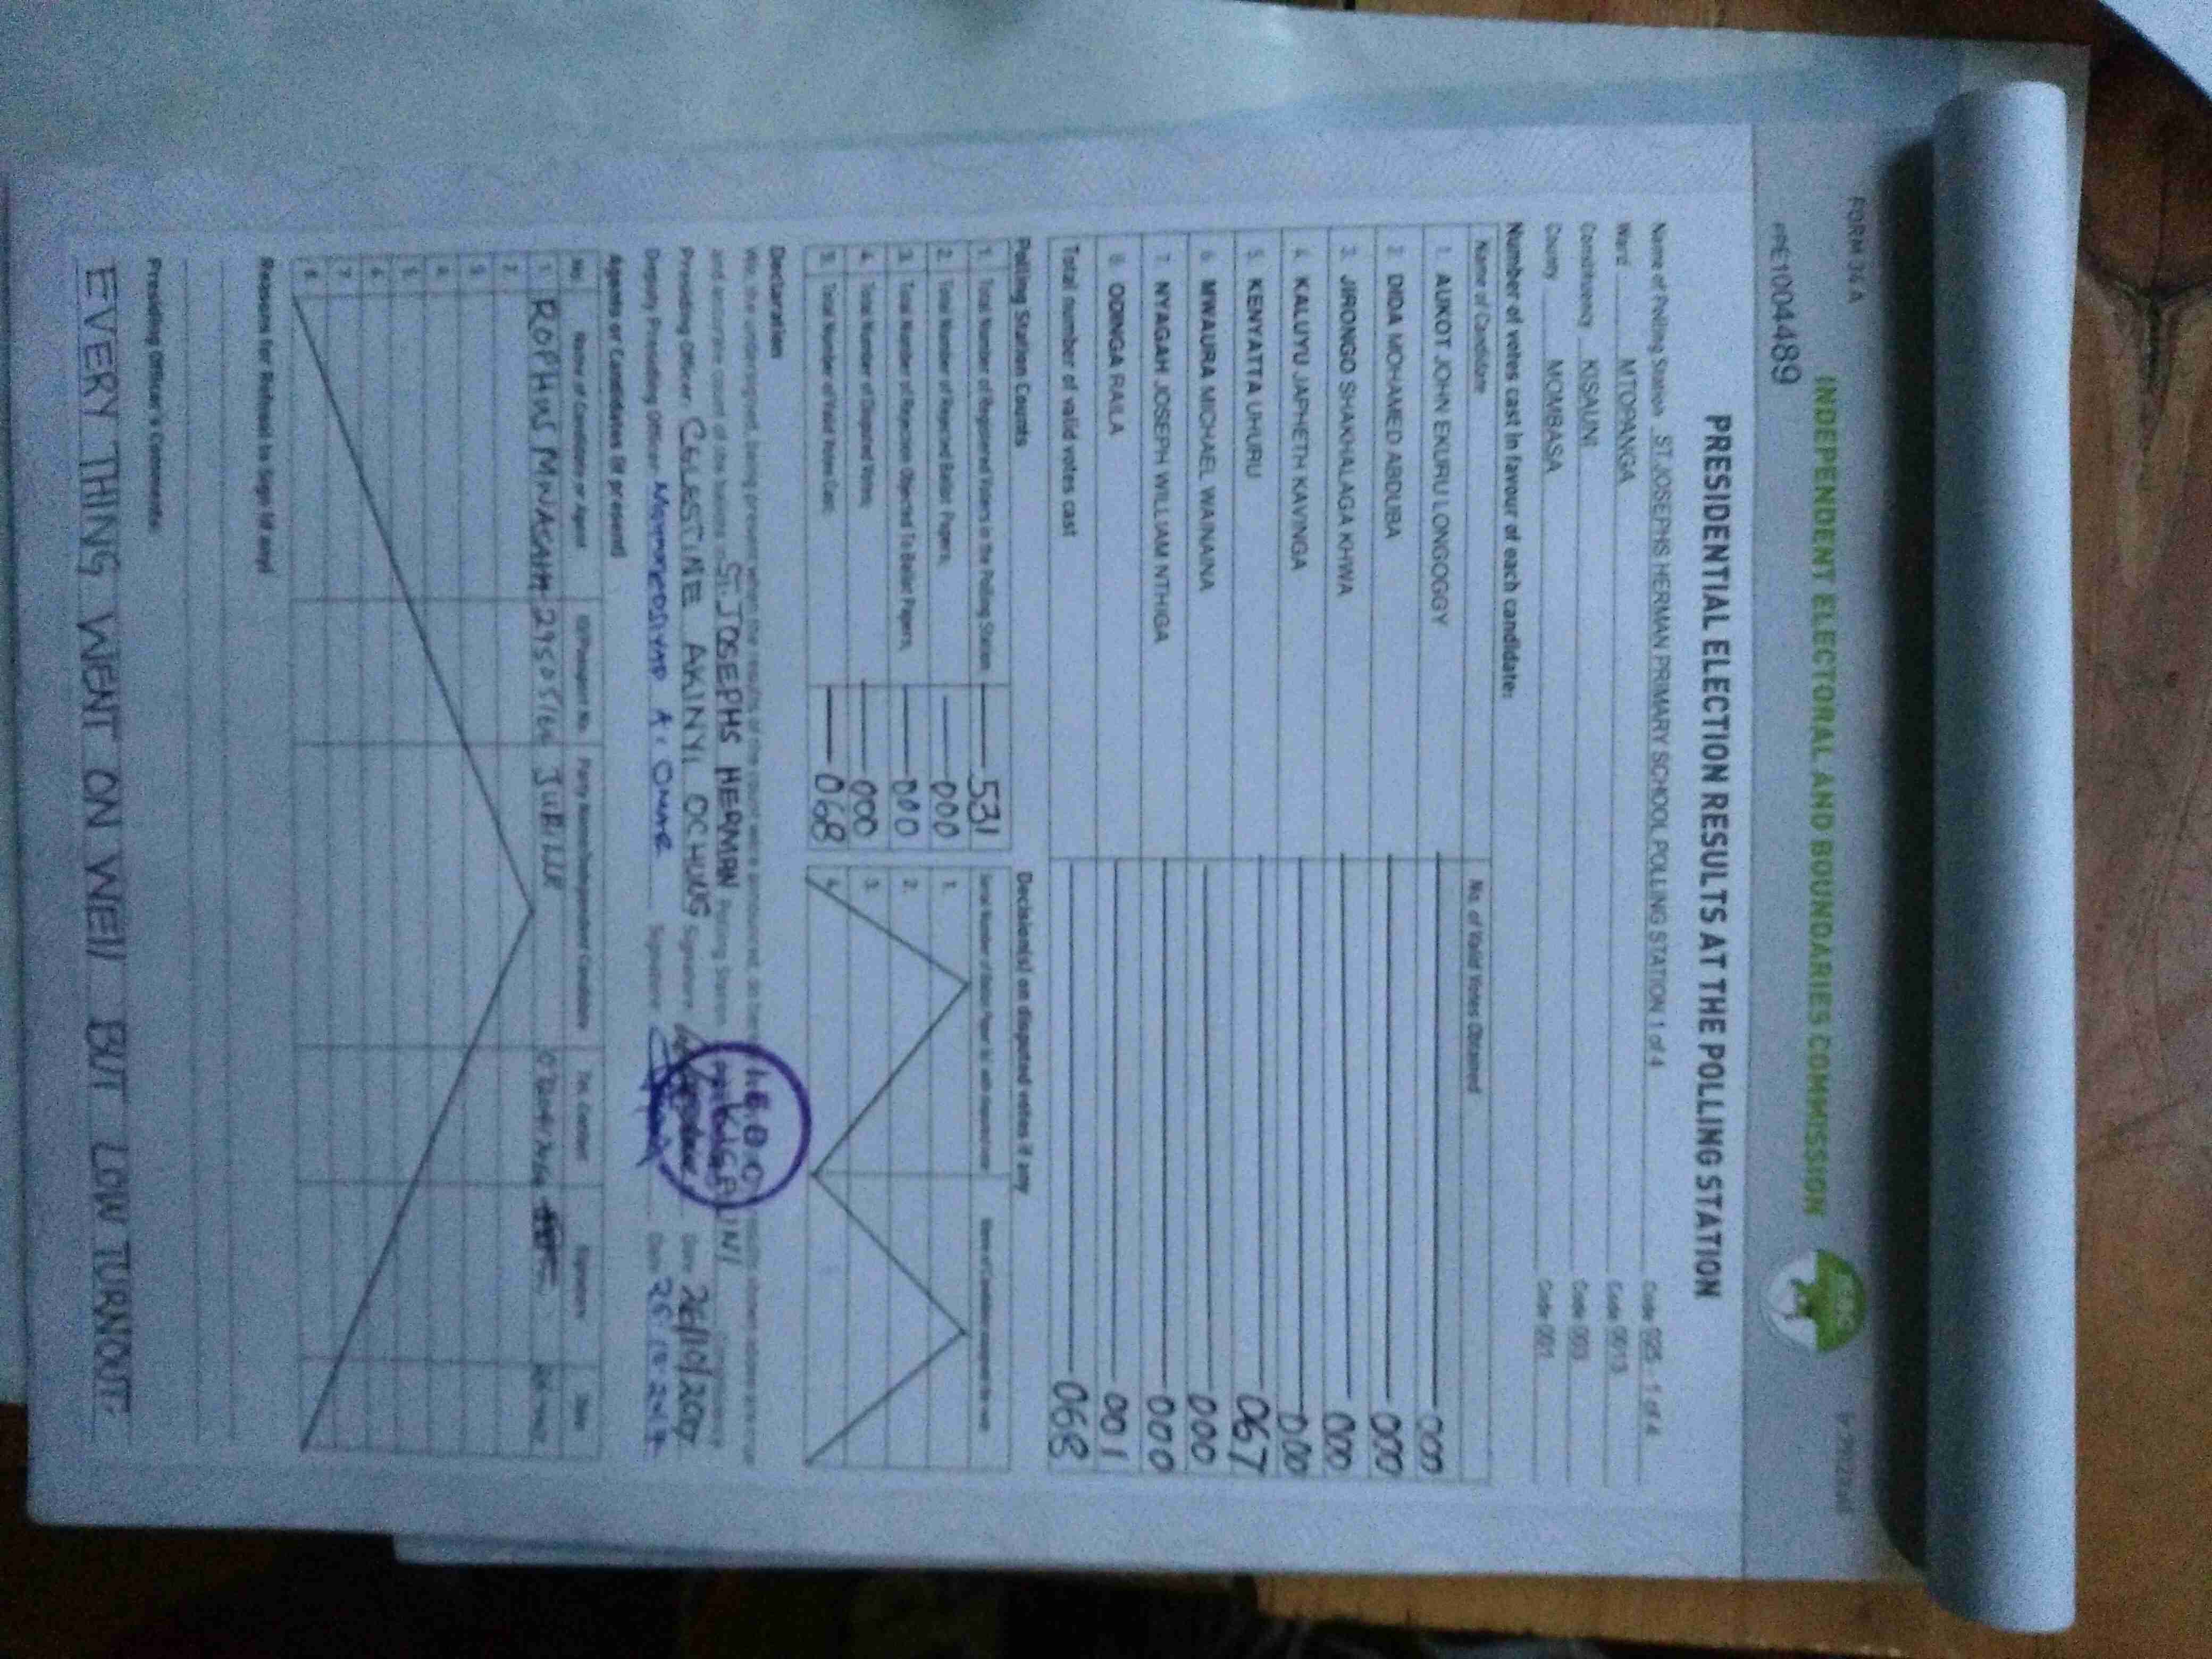 FORM 34A
INDEPENDENT ELECTORAL AND BOUNDARIES COMMISSION
PE1004489
PRESIDENTIAL ELECTION RESULTS AT THE POLLING STATION
Name of Polling Station ST.JOSEPHS HERMAN PRIMARY SCHOOL POLLING STATION 1 of 4 Code 025 - 1 of 4
Ward MTOPANGA Code 0013
Constituency KISAUNI Code 003
County MOMBASA Code 001
Number of votes cast in favour of each candidate:
Name of Candidate No. of Valid Votes Obtained
1. AUKOT JOHN EKURU LONGOGGY 000
2. DIDA MOHAMED ABDUBA 000
3. JIRONGO SHAKHALAGA KHWA 000
4. KALUYU JAPHETH KAVINGA 000
5. KENYATTA UHURU 067
6. MWAURA MICHAEL WAINAINA 000
7. NYAGAH JOSEPH WILLIAM NTHIGA 000
8. ODINGA RAILA 001
Total number of valid votes cast 068
Polling Station Counts
1. Total Number of Registered Voters in the Polling Station 531
2. Total Number of Rejected Ballot Papers 000
3. Total Number of Rejection Objected To Ballot Papers 000
4. Total Number of Disputed Votes 000
5. Total Number of Valid Votes Cast 068
Decision(s) on disputed votes if any
1.
2.
3.
4.
Declaration
We, the undersigned, being present when the results of the count were announced, do
and accurate count of the ballots in ST. JOSEPHS HERMAN Polling Station KISAUNI
Presiding Officer CELESTINE AKINYI OCHUNG Signature Date 26/10/2017
Deputy Presiding Officer Signature Date
I.E.B.C
Agents or Candidates (if present)
No Name of Candidate or Agent ID/Passport No. Party Name/Independent Candidate Tel. Contact Signature Date
1. ROPHUS JUBILEE
2.
3.
4.
5.
6.
7.
8.
Reasons for Refusal to Sign (if any)
Presiding Officer's Comments:
EVERY THING WENT ON WELL BUT LOW TURNOUT